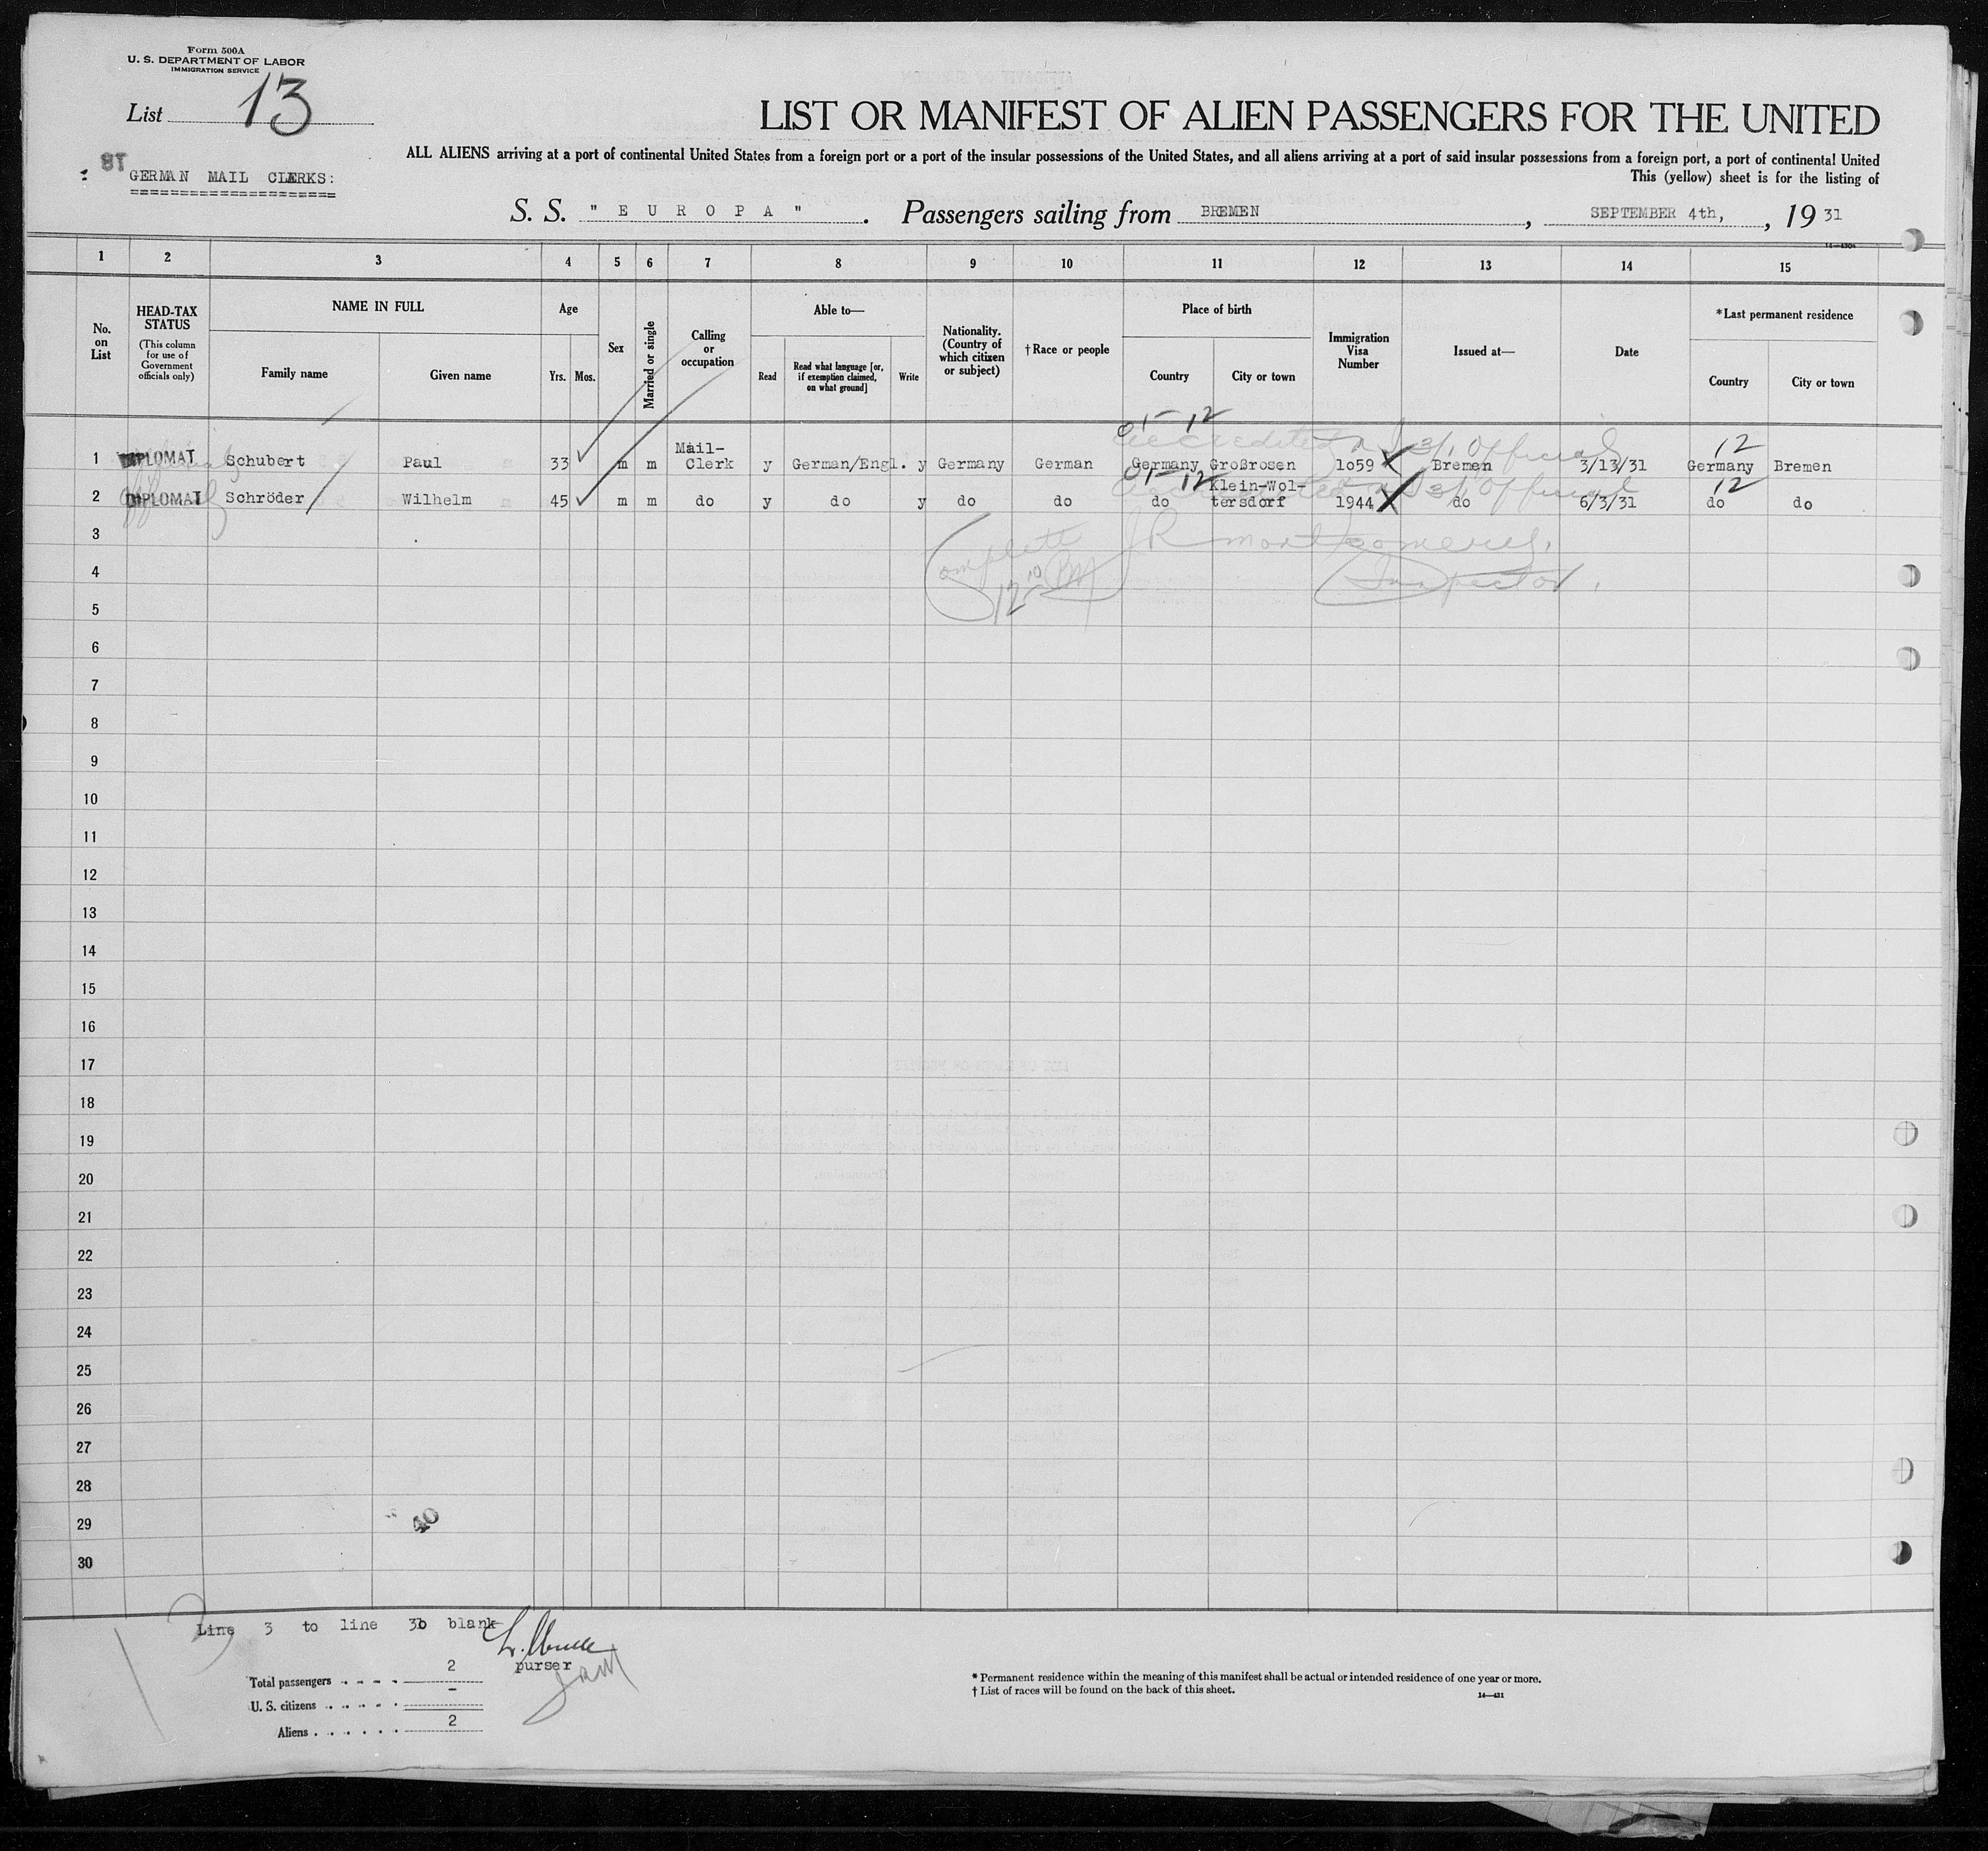 Form 500A
U. S. DEPARTMENT OF LABOR
IMMIGRATION SERVICE
List 13
LIST OR MANIFEST OF ALIEN PASSENGERS FOR THE UNITED
ALL ALIENS arriving at a port of continental United States from a foreign port or a port of the insular possessions of the United States, and all aliens arriving at a port of said insular possessions from a foreign port, a port of continental United
This (yellow) sheet is for the listing of
GERMAN MAIL CLERKS:
S. S. "EUROPA". Passengers sailing from BREMEN, SEPTEMBER 4th, , 1931
1 2 3 4 5 6 7 8 9 10 11 12 13 14 15
No. on List
HEAD-TAX STATUS
(This column for use of Government officials only)
NAME IN FULL
Family name
Given name
Age
Yrs.
Mos.
Sex
Married or single
Calling or occupation
Able to—
Read
Read what language [or, if exemption claimed, on what ground]
Write
Nationality. (Country of which citizen or subject)
† Race or people
Place of birth
Country
City or town
Immigration Visa Number
Issued at—
Date
* Last permanent residence
Country
City or town
1 DIPLOMAT Schubert Paul 33 m m Mail-Clerk y German/Engl. y Germany German Germany Großrosen 1o59 Bremen 3/13/31 Germany Bremen
accredited 3/1 Official
2 DIPLOMAT Schröder Wilhelm 45 m m do y do y do do do Klein-Wol-tersdorf 1944 do 6/3/31 do do
3/1 Official
Complete JR Montgomery.
12 10 PM Inspector.
3
4
5
6
7
8
9
10
11
12
13
14
15
16
17
18
19
20
21
22
23
24
25
26
27
28
29
30
40
Line 3 to line 30 blank
purser
JRM
Total passengers 2
U. S. citizens –
Aliens 2
* Permanent residence within the meaning of this manifest shall be actual or intended residence of one year or more.
† List of races will be found on the back of this sheet.
14—431